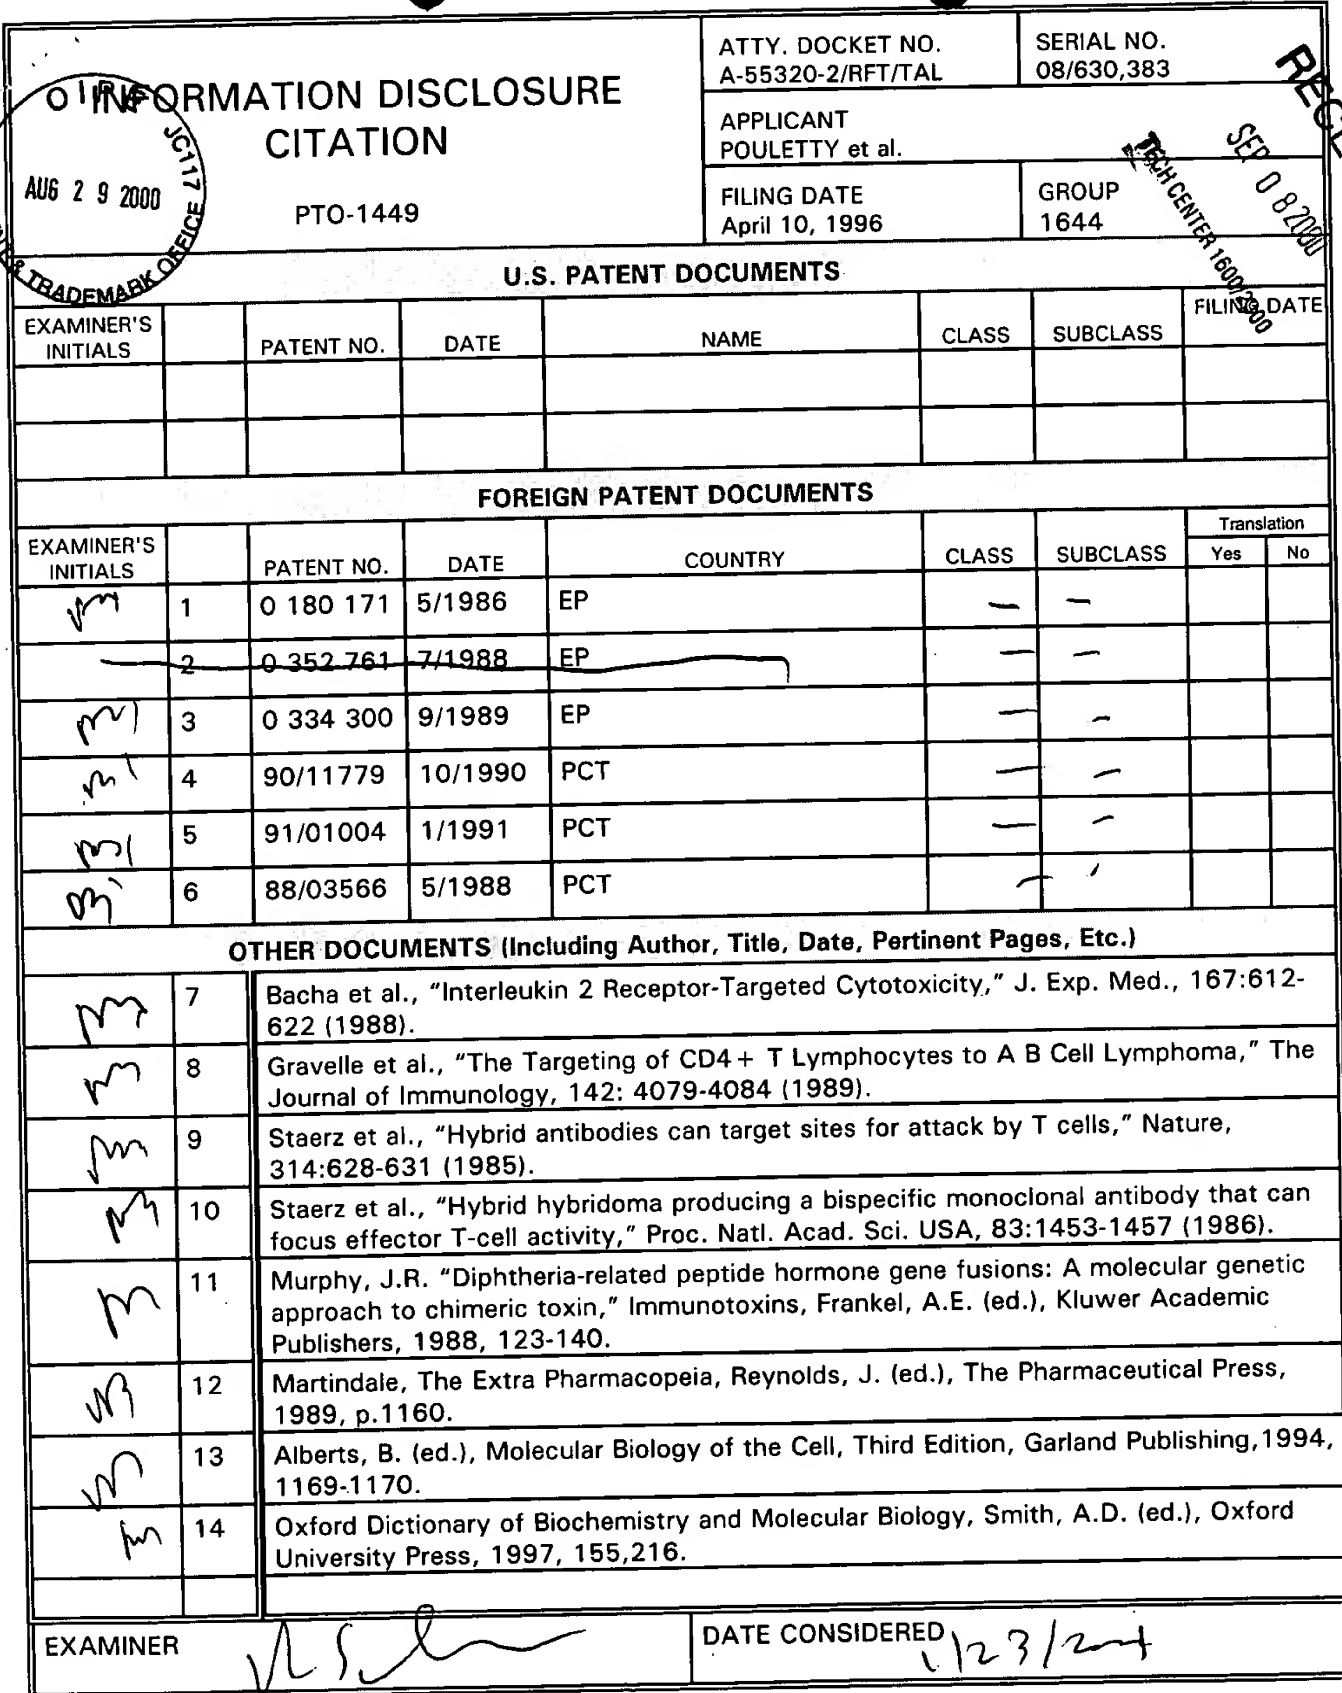 INFORMATION DISCLOSURE
CITATION
PTO-1449
ATTY. DOCKET NO.
A-55320-2/RFT/TAL
SERIAL NO.
08/630,383
APPLICANT
POULETTY et al.
FILING DATE
April 10, 1996
GROUP
1644
AUG 2 9 2000
JC117
TRADEMARK OFFICE
SEP 08 2000
TECH CENTER 1600/2900
U.S. PATENT DOCUMENTS
EXAMINER'S
INITIALS
PATENT NO. DATE NAME CLASS SUBCLASS FILING DATE
FOREIGN PATENT DOCUMENTS
EXAMINER'S
INITIALS
PATENT NO. DATE COUNTRY CLASS SUBCLASS
Translation
Yes No
1 0 180 171 5/1986 EP — —
2 0 352 761 7/1988 EP — —
3 0 334 300 9/1989 EP — —
4 90/11779 10/1990 PCT — —
5 91/01004 1/1991 PCT — —
6 88/03566 5/1988 PCT — —
OTHER DOCUMENTS (Including Author, Title, Date, Pertinent Pages, Etc.)
7 Bacha et al., "Interleukin 2 Receptor-Targeted Cytotoxicity," J. Exp. Med., 167:612-
622 (1988).
8 Gravelle et al., "The Targeting of CD4+ T Lymphocytes to A B Cell Lymphoma," The
Journal of Immunology, 142: 4079-4084 (1989).
9 Staerz et al., "Hybrid antibodies can target sites for attack by T cells," Nature,
314:628-631 (1985).
10 Staerz et al., "Hybrid hybridoma producing a bispecific monoclonal antibody that can
focus effector T-cell activity," Proc. Natl. Acad. Sci. USA, 83:1453-1457 (1986).
11 Murphy, J.R. "Diphtheria-related peptide hormone gene fusions: A molecular genetic
approach to chimeric toxin," Immunotoxins, Frankel, A.E. (ed.), Kluwer Academic
Publishers, 1988, 123-140.
12 Martindale, The Extra Pharmacopeia, Reynolds, J. (ed.), The Pharmaceutical Press,
1989, p.1160.
13 Alberts, B. (ed.), Molecular Biology of the Cell, Third Edition, Garland Publishing,1994,
1169-1170.
14 Oxford Dictionary of Biochemistry and Molecular Biology, Smith, A.D. (ed.), Oxford
University Press, 1997, 155,216.
EXAMINER
DATE CONSIDERED